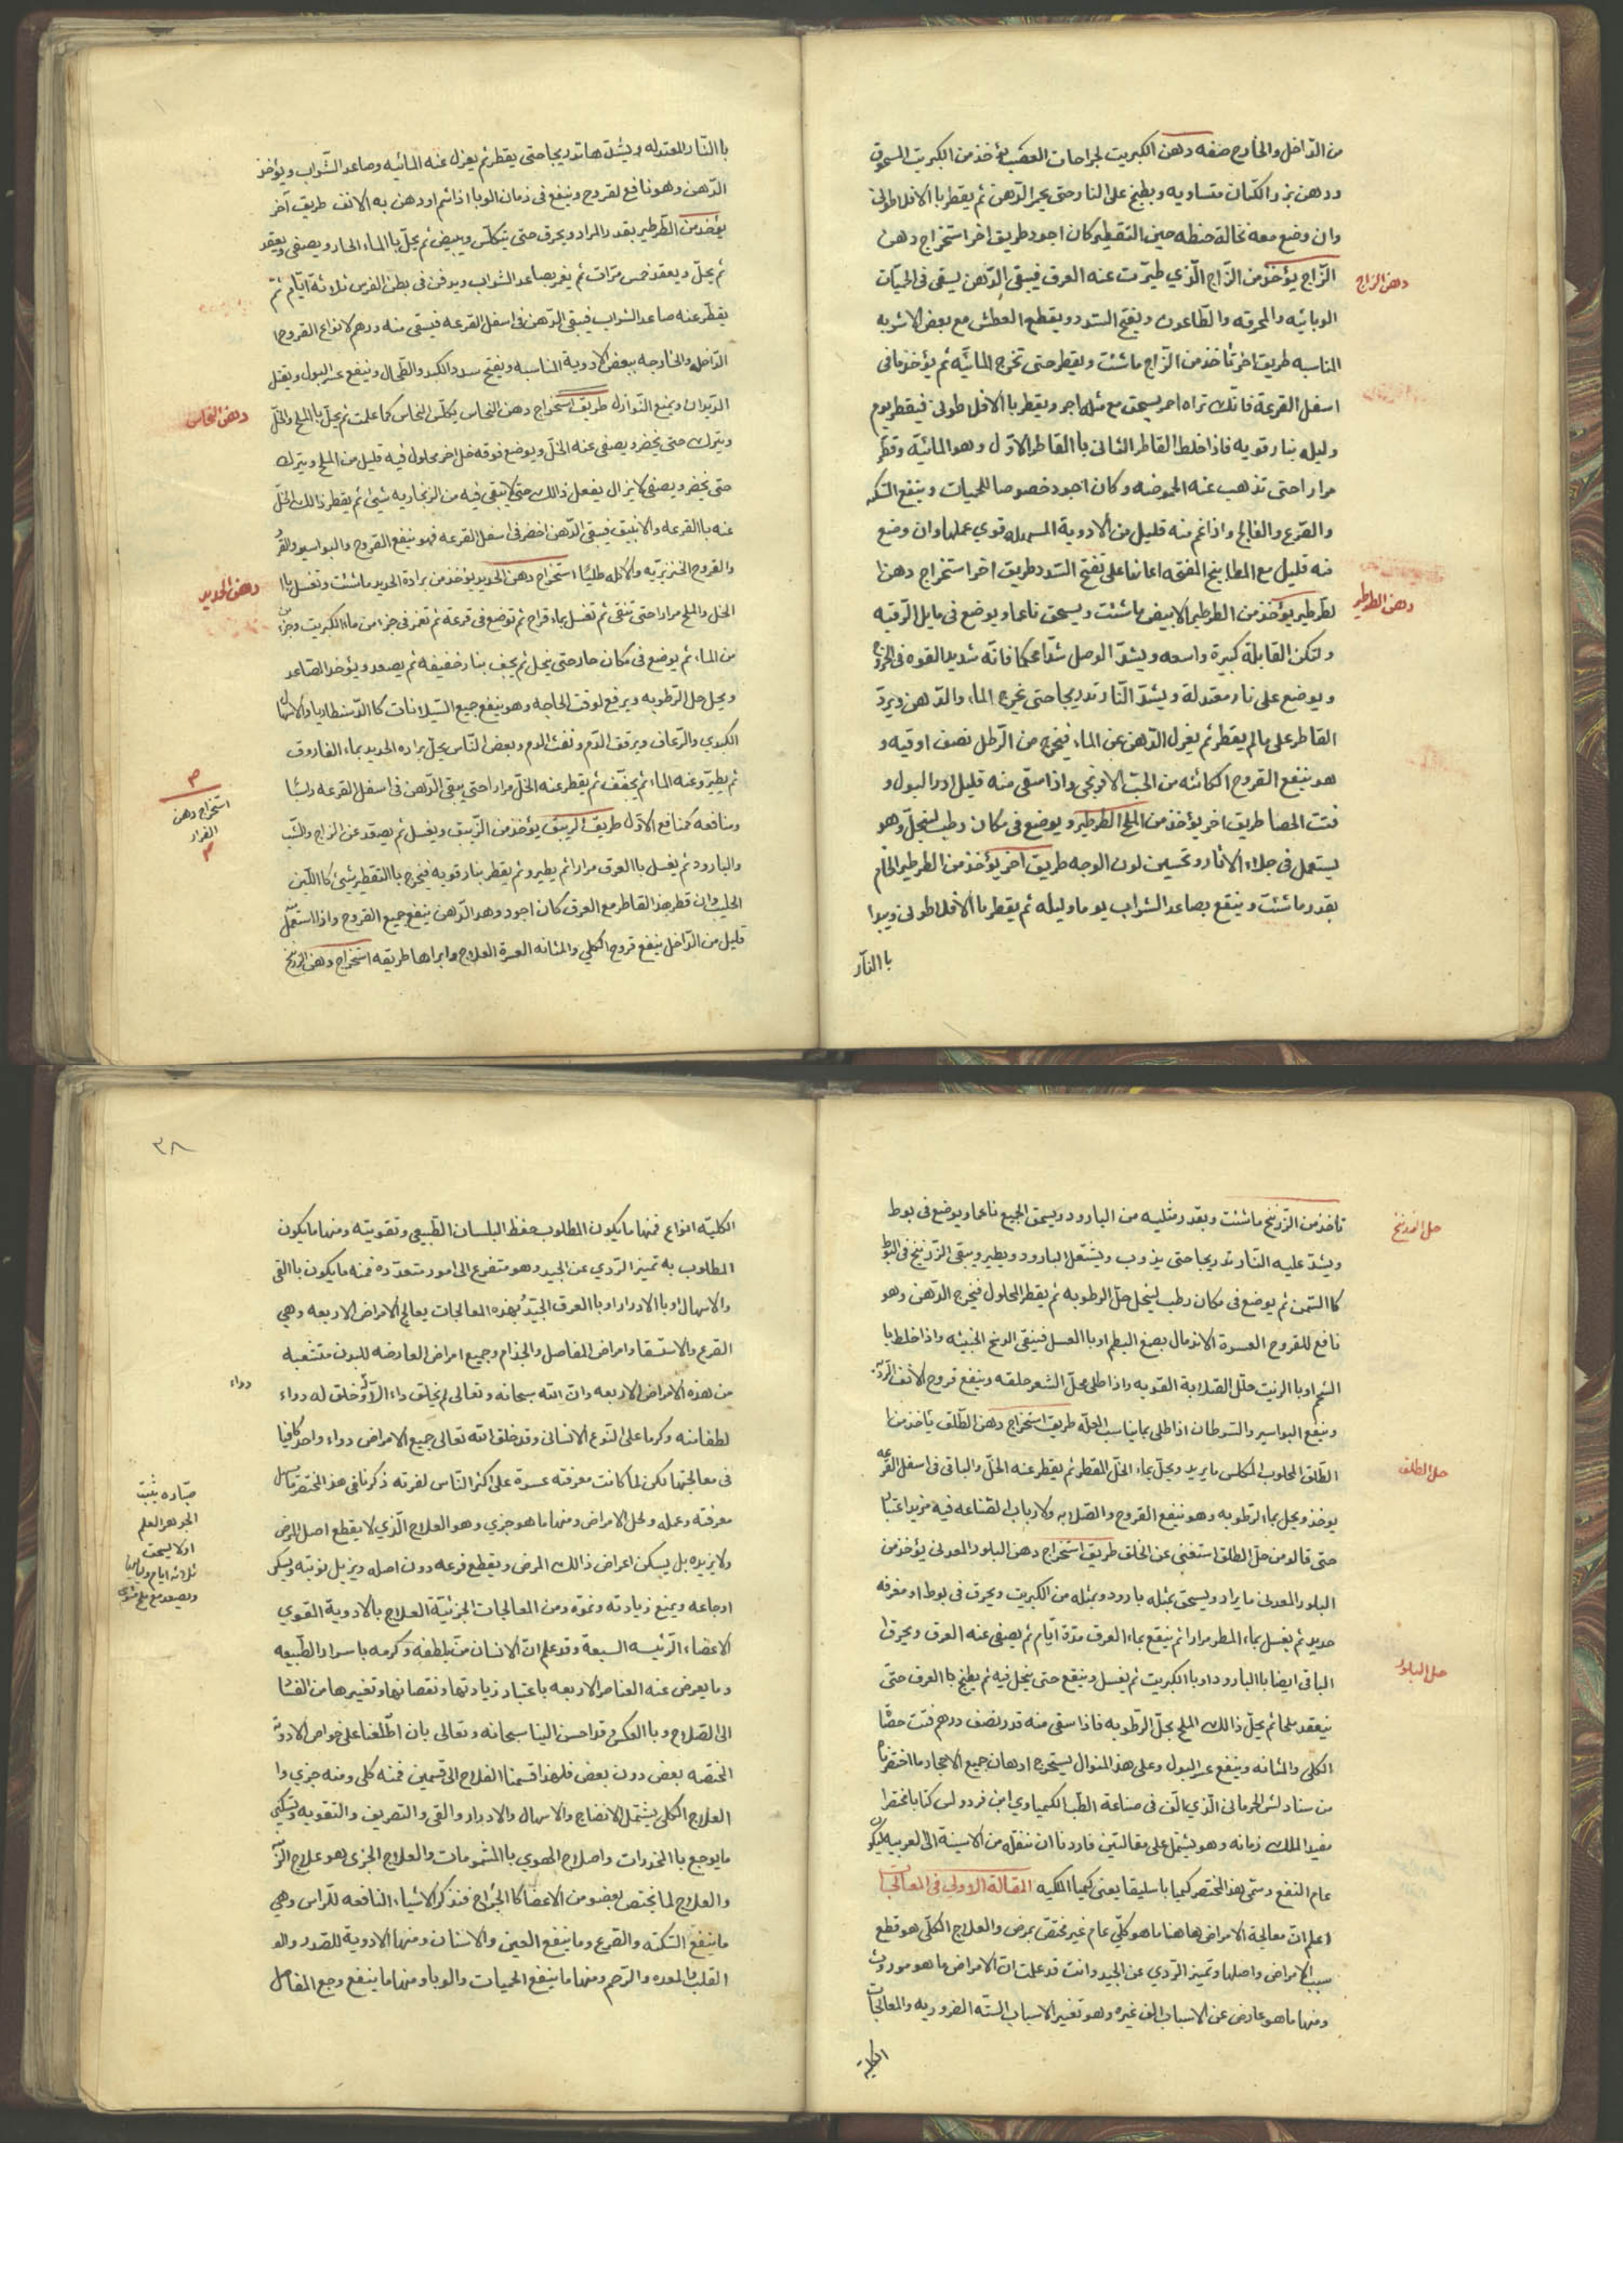 من الداخل والخارج صفه دهن الكبريت لجراحات العصب يؤخذ من الكبريت المسحوق
ودهن بزر الكتان متساويه ويطبخ على النار حتى يحمر الدهن ثم يقطر باالافلاطونى
وان وضع معه نخالة حنطه حين التقطير كان اجود طريق اخر استخراج دهن
الزاج يؤخذ من الزاج الذي طيرت عنه العرق فيبقى الدهن يسقى فى الحميات
دهن الزاج
الوبائيه والمحرقه والطاعون ويفتح السدد ويقطع العطش مع بعض الاشربه
المناسبه طريق اخر تأخذ من الزاج ما شئت ويقطر حتى تخرج المائيه ثم يؤخذ مافى
اسفل القرعة فانك تراه احمر يسحق مع مثله اجر ويقطر باالافلاطونى فيقطر يوم
وليله بنار قويه فاذا خلط القاطر الثانى باالقاطر الاول وهو المائيه وقطر
مرارا حتى تذهب عنه الحموضه وكان اجود خصوصا للحميات وينفع السكته
والصرع والفالج واذا ضم منه قليل من الادوية المسهله قوي عملها وان وضع
منه قليل مع المطابيخ المفتحه اعانها على تفتح السدد طريق اخر استخراج دهن
لطرطير يؤخذ من الطرطير الابيض ما شئت ويسحق ناعما ويوضع فى مايل الرقبه
دهن الطرطير
ولتكن القابلة كبيرة واسعه ويشد الوصل شدا محكما فانه شديد القوه فى الخروج
ويوضع على نار معتدلة ويشد النار تدريجا حتى يخرج الماء والدهن ويرد
القاطر على مالم يقطر ثم يعزل الدهن عن الماء فيخرج من الرطل نصف اوقيه و
هو ينفع القروح الكائنه من الحب الافرنجى واذا سقى منه قليل ادر البول و
فتت الحصا طريق اخر يؤخذ من الملح الطرطير ويوضع فى مكان رطب لينحل وهو
يستعمل فى جلاء الاثار وتحسين لون الوجه طريق اخر يؤخذ من الطرطير الخام
بقدر ما شئت وينقع بصاعد الشراب يوما وليله ثم يقطر باالافلاطونى ويبدا
باالنار
باالنار المعتدله ويشد ها تدريجا حتى يقطر ثم يعزل عنه المائيه وصاعد الشراب ويؤخذ
الدهن وهو نافع لقروح وينفع فى زمان الوبا اذا شم او دهن به الانف طريق آخر
يؤخذ من الطرطير بقدر المراد ويحرق حتى يتكلس ويبيض ثم يحل باالماء الحار ويصفى ويعقد
ثم يحل ويعقد خمس مرات ثم يغمر بصاعد الشراب ويدفن فى بطن الفرس ثلاثة ايام ثم
يقطر عنه صاعد الشراب فيبقى الدهن فى اسفل القرعه فيسقى منه درهم لانواع القروح
الداخله والخارجه ببعض الادوية المناسبه ويفتح سدد الكبد والطحال وينفع عسر البول ويقتل
الديدان ويمنع النوازل طريق استخراج دهن النحاس يكلس النحاس كما علمت ثم يحل باالملح والخل
دهن النحاس
ويترك حتى يخضر ويصفى عنه الخل ويوضع فوقه خل اخر محلول فيه قليل من الملح ويترك
حتى يخضر ويصفى لا يزال يفعل ذالك حتى لا يبقى فيه من الزنجاريه شيئ ثم يقطر ذالك الخل
عنه باالقرعه والانبيق فيبقى الدهن اخضر فى اسفل القرعه فهو ينفع القروح والبواسير
والقروح الخنزيريه والاكله طليا استخراج دهن الحديد يؤخذ من برادة الحديد ما شئت وتغسل باا
دهن الحديد
الخل والملح مرارا حتى تنقى ثم تغسل بماء قراح ثم توضع فى قرعة ثم تغمر فى جزء من ماء الكبريت وجزء
من الماء ثم يوضع فى مكان حار حتى ينحل ثم يجفف بنار خفيفه ثم يصعد ويؤخذ الصاعد
ويحل حل الرطوبه ويرفع لوقت الحاجه وهو ينفع جميع السيلانات كاالدسنطاريا والاسهال
الكبدي والرعاف ويوقف الدم ونفث الدم وبعض الناس يحل براده الحديد بماء الفاروق
ثم يطير وعنه الماء ثم يجفف ثم يقطر عنه الخل مرارا حتى يبقى الدهن فى اسفل القرعه راسبا
ومنافعه كمنافع الاول طريق الزيبق يؤخذ من الزيبق ويغسل ثم يصعد عن الزاج والشب
استخراج دهن
الفرار
والبارود ثم يغسل باالعرق مرارا ثم يطير وثم يقطر بنار قويه فيخرج باالتقطير شيئ كاالبن
الحليب وان قطر هذا القاطر مع العرق كان اجود وهذ الدهن ينفع جميع القروح واذا استعمل
قليل من الداخل ينفع قروح الكلى والمثانه العسرة العلاج وابراها طريقه استخراج دهن الزرنيخ
تأخذ من الزرنيخ ما شئت وبقدر مثليه من البارود ويسحق الجميع ناعما ويوضع فى بوط
حل الزرنيخ
ويشد عليه النار تدريجا حتى يذوب ويشتعل البارود ويطير ويبقى الزرنيخ فى البوط
كاالسمن ثم يوضع فى مكان رطب لينحل حل الرطوبه ثم يقطر المحلول فيخرج الدهن وهو
نافع للقروح العسرة الاندمال بصمغ البطم او باالعسل فينقى الوسخ الخبيثه واذا خلط با
الشحم او باالزيت حلل الصلابة القويه واذا طلى محل الشعر حلقه وينفع قروح الانف
وينفع البواسير والسرطان اذا طلى بما يناسب العله طريق استخراج دهن الطلق ياخذ من
الطلق المحلوب المكلس ما يريد ويحل بماء الخل المقطر ثم يقطر عنه الخل والباقى فى اسفل القرعه
حل الطلق
يوخذ ويحل بماء الرطوبه وهو ينفع القروح والصلابه ولارباب الصناعه فيه مزيد اعتناء
حتى قالو من حل الطلق استغنى عن الخلق طريق استخراج دهن البلور المعدنى يؤخذ من
البلور المعدنى ما يراد ويسحق بمثله بارود وبمثله من الكبريت ويحرق فى بوط او مغرفه
حديد ثم يغسل بماء المطر مرارا ثم ينقع بماء العرق مدة ايام ثم يصفى عنه العرق ويحرق
الباقى ايضا باالبارود او باالكبريت ثم يغسل وينقع حتى ينحل فيه ثم يطبخ كاالعرق حتى
حل البلور
ينعقد ملحا ثم يحل ذالك الملح بحل الرطوبه فاذا سقى منه قدر نصف درهم فتت حصاة
الكلى والمثانه وينفع عسر البول وعلى هذ المنوال يستخرج ادهان جميع الاحجار ما اختصرناه
من سنادلس الجرمانى الذي الف فى صناعة الطب الكيمياوي ابن فردوس كتابا مختصرا
مفيدا لملك زمانه وهو يشتمل على مقالتين فاردنا ان ننقله من الاسينة الى العربيه ليكون
عام النفع وسمى هذ المختصر كيميا باسليقا يعنى كيميا الملكيه المقالة الاولى فى المعالجات
اعلم ان معالجة الامراض هاهنا ما هو كلي عام غير مختص بمرض والعلاج الكلى هو قطع
سبب الامراض واصلها وتميز الردي عن الجيد وانت قد علمت ان الامراض ما هو موروث
ومنها ما هو عارض عن الاسباب الف غيره وهو تغير الاسباب الستة الضروريه والمعالجات
الكلية
٣٨
الكليه انواع فمنها ما يكون المطلوب حفظ البلسان الطبيعى وتقويته ومنها ما يكون
المطلوب به تميز الردي عن الجيد وهو متفرع الى امور متعدده فمنه ما يكون باالقى
والاسهال او باالادرار او باالعرق الجيد بهذه المعالجات يعالج الامراض الاربعه وهي
الصرع والاستسقا وامراض المفاصل والجذام وجميع امراض العارضه للبدن متشعبه
من هذه الامراض الاربعه وان الله سبحانه وتعالى لم يخلق داء الا وخلق له دواء
دواء
لطفا منه وكرما على النوع الانسانى وقد خلق الله تعالى جميع الامراض دواء واحد كافيا
فى معالجتها لكن لما كانت معرفته عسرة على اكثر الناس لغربته ذكرنا فى هذ المختصر ما يسهل
معرفته وعمله ولحل الامراض ومنها ما هو جزي وهو العلاج الذي لا يقطع اصل المرض
ولا يزيده بل يسكن اعراض ذالك المرض ويقطع فرعه دون اصله ويزيل نوبته ويسكن
اوجاعه ويمنع زيادته ونموه ومن المعالجات الجزئية العلاج بالادوية القوي
الاعضاء الرئيسه السبعة وقد علم ان الانسان من بلطفه وكرمه باسرار الطبيعه
وما يعرض عنه العناصر الاربعه باعتبار زيادتها ونقصانها وتغيرها من الفساد
الى الصلاح وباالعكس وقد احسن الينا سبحانه وتعالى بان اطلعنا على خواص الادويه
المختصه بعض دون بعض فلهذا قسمنا العلاج الى قسمين فمنه كلى ومنه جزي وا
العلاج الكلى يشتمل الانضاج والاسهال والادرار والقى والتعريق والتقويه وتسكين
ما يوجع باالمخدرات واصلاح الهوي باالشمومات والعلاج الجزى هو علاج
والعلاج لما يختص بعضو من الاعضا كاالجراح فنذكر الاشياء النافعه للراس وهي
ما ينفع السكته والصرع وما ينفع العين والاسنان ومنها الادوية للصدر والو
القلب والمعده والرحم ومنها ما ينفع الحميات والوبا ومنها ما ينفع وجع المفاصل
يثبت
الجوهر العلم
اولا يسحق
ثلاثه ايام
ويصعد مع ملح